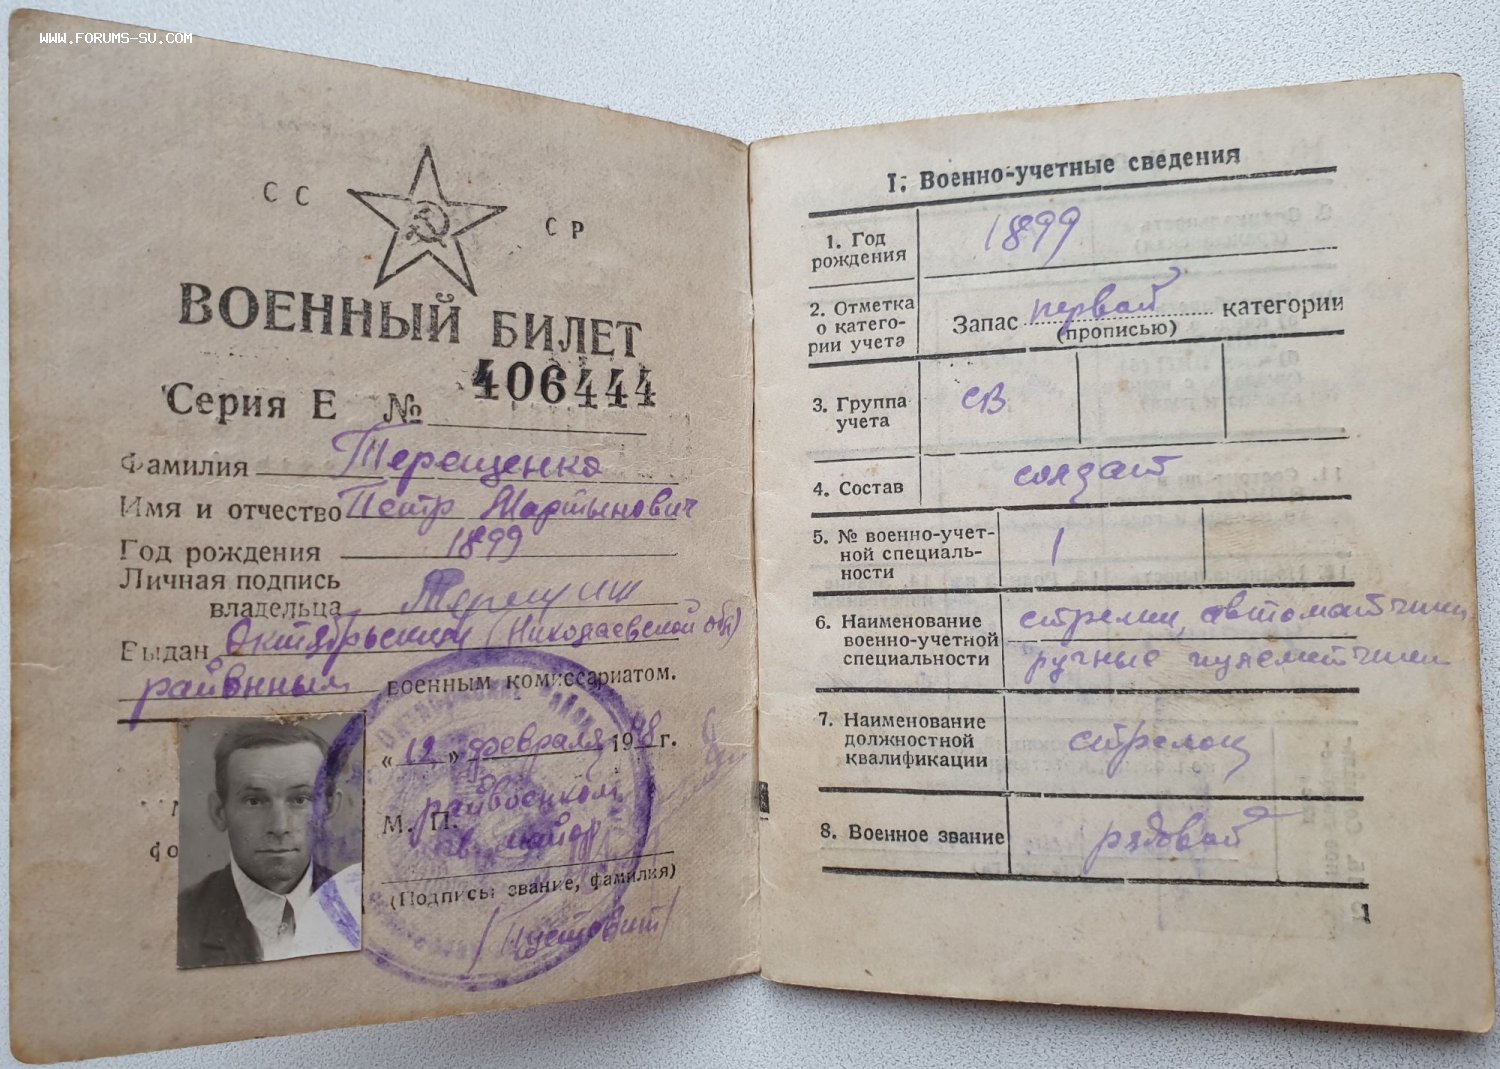 WWW.FORUMS-SU.COM
СС СР
ВОЕННЫЙ БИЛЕТ
Серия Е № 406444
Фамилия Терещенко
Имя и отчество Петр Мартынович
Год рождения 1899
Личная подпись
владельца
Выдан Октябрьским (Николаевской обл)
районным военным комиссариатом.
«12» февраля 1948 г.
райвоенком
М. П.
гв. майор
(Подпись: звание, фамилия)
/Пустовит/
фо
I. Военно-учетные сведения
1. Год
рождения
1899
2. Отметка
о катего-
рии учета
Запас первой категории
(прописью)
3. Группа
учета
СВ
4. Состав
солдат
5. № военно-учет-
ной специаль-
ности
1
6. Наименование
военно-учетной
специальности
стрелки, автоматчики
ручные пулеметчики
7. Наименование
должностной
квалификации
стрелок
8. Военное звание
рядовой
1